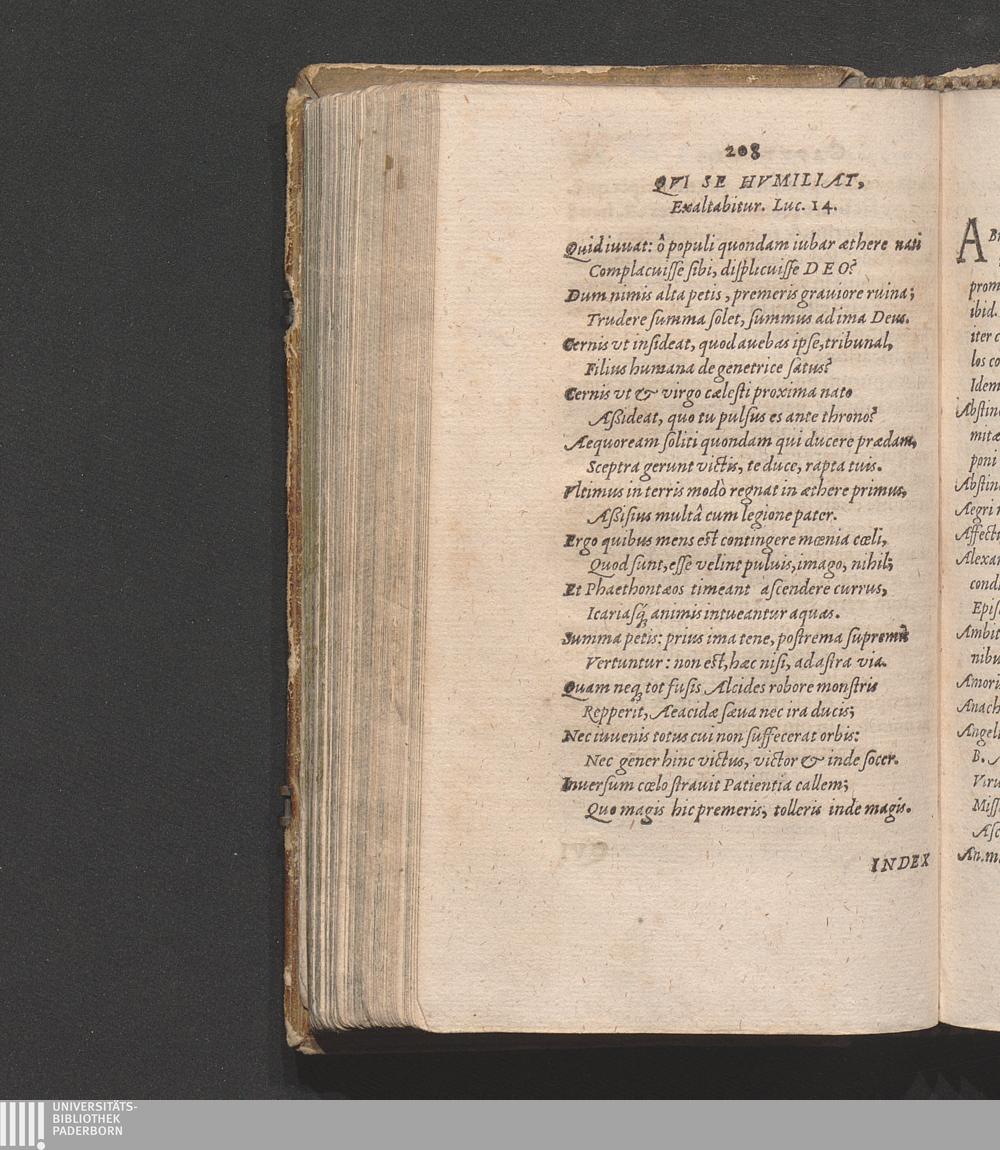 208
QVI SE HVMILIAT,
Exaltabitur. Luc. 14.
Quid iuuat: ô populi quondam iubar æthere nati
Complacuiſſe ſibi, diſplicuiſſe DEO?
Dum nimis alta petis, premeris grauiore ruina;
Trudere ſumma ſolet, ſummus ad ima Deus.
Cernis vt inſideat, quod auebas ipſe, tribunal,
Filius humana de genetrice ſatus?
Cernis vt & virgo cæleſti proxima nato
Aßideat, quo tu pulſus es ante throno?
Aequoream ſoliti quondam qui ducere prædam,
Sceptra gerunt victis, te duce, rapta tuis.
Vltimus in terris modò regnat in æthere primus,
Aßiſius multâ cum legione pater.
Ergo quibus mens eſt contingere mœnia cœli,
Quod ſunt, eſſe velint puluis, imago, nihil;
Et Phaethontæos timeant aſcendere currus,
Icariasq́; animis intueantur aquas.
Summa petis: prius ima tene, poſtrema ſupremis
Vertuntur: non eſt, hæc niſi, ad aſtra via.
Quam neq; tot fuſis Alcides robore monſtris
Repperit, Aeacidæ ſæua nec ira ducis;
Nec iuuenis totus cui non ſuffecerat orbis:
Nec gener hinc victus, victor & inde ſocer.
Inuerſum cœlo ſtrauit Patientia callem;
Quo magis hic premeris, tolleris inde magis.
INDEX
A
prom
ibid.
iter c
los co
Idem
Abſtin
mitæ
poni
Abſtin
Aegri
Affectu
Alexan
cond
Epiſ
Ambit
nibu
Amoris
Anach
Angel
B. A
Viru
Miſſ
Aſc
An.m
UNIVERSITÄTS-
BIBLIOTHEK
PADERBORN